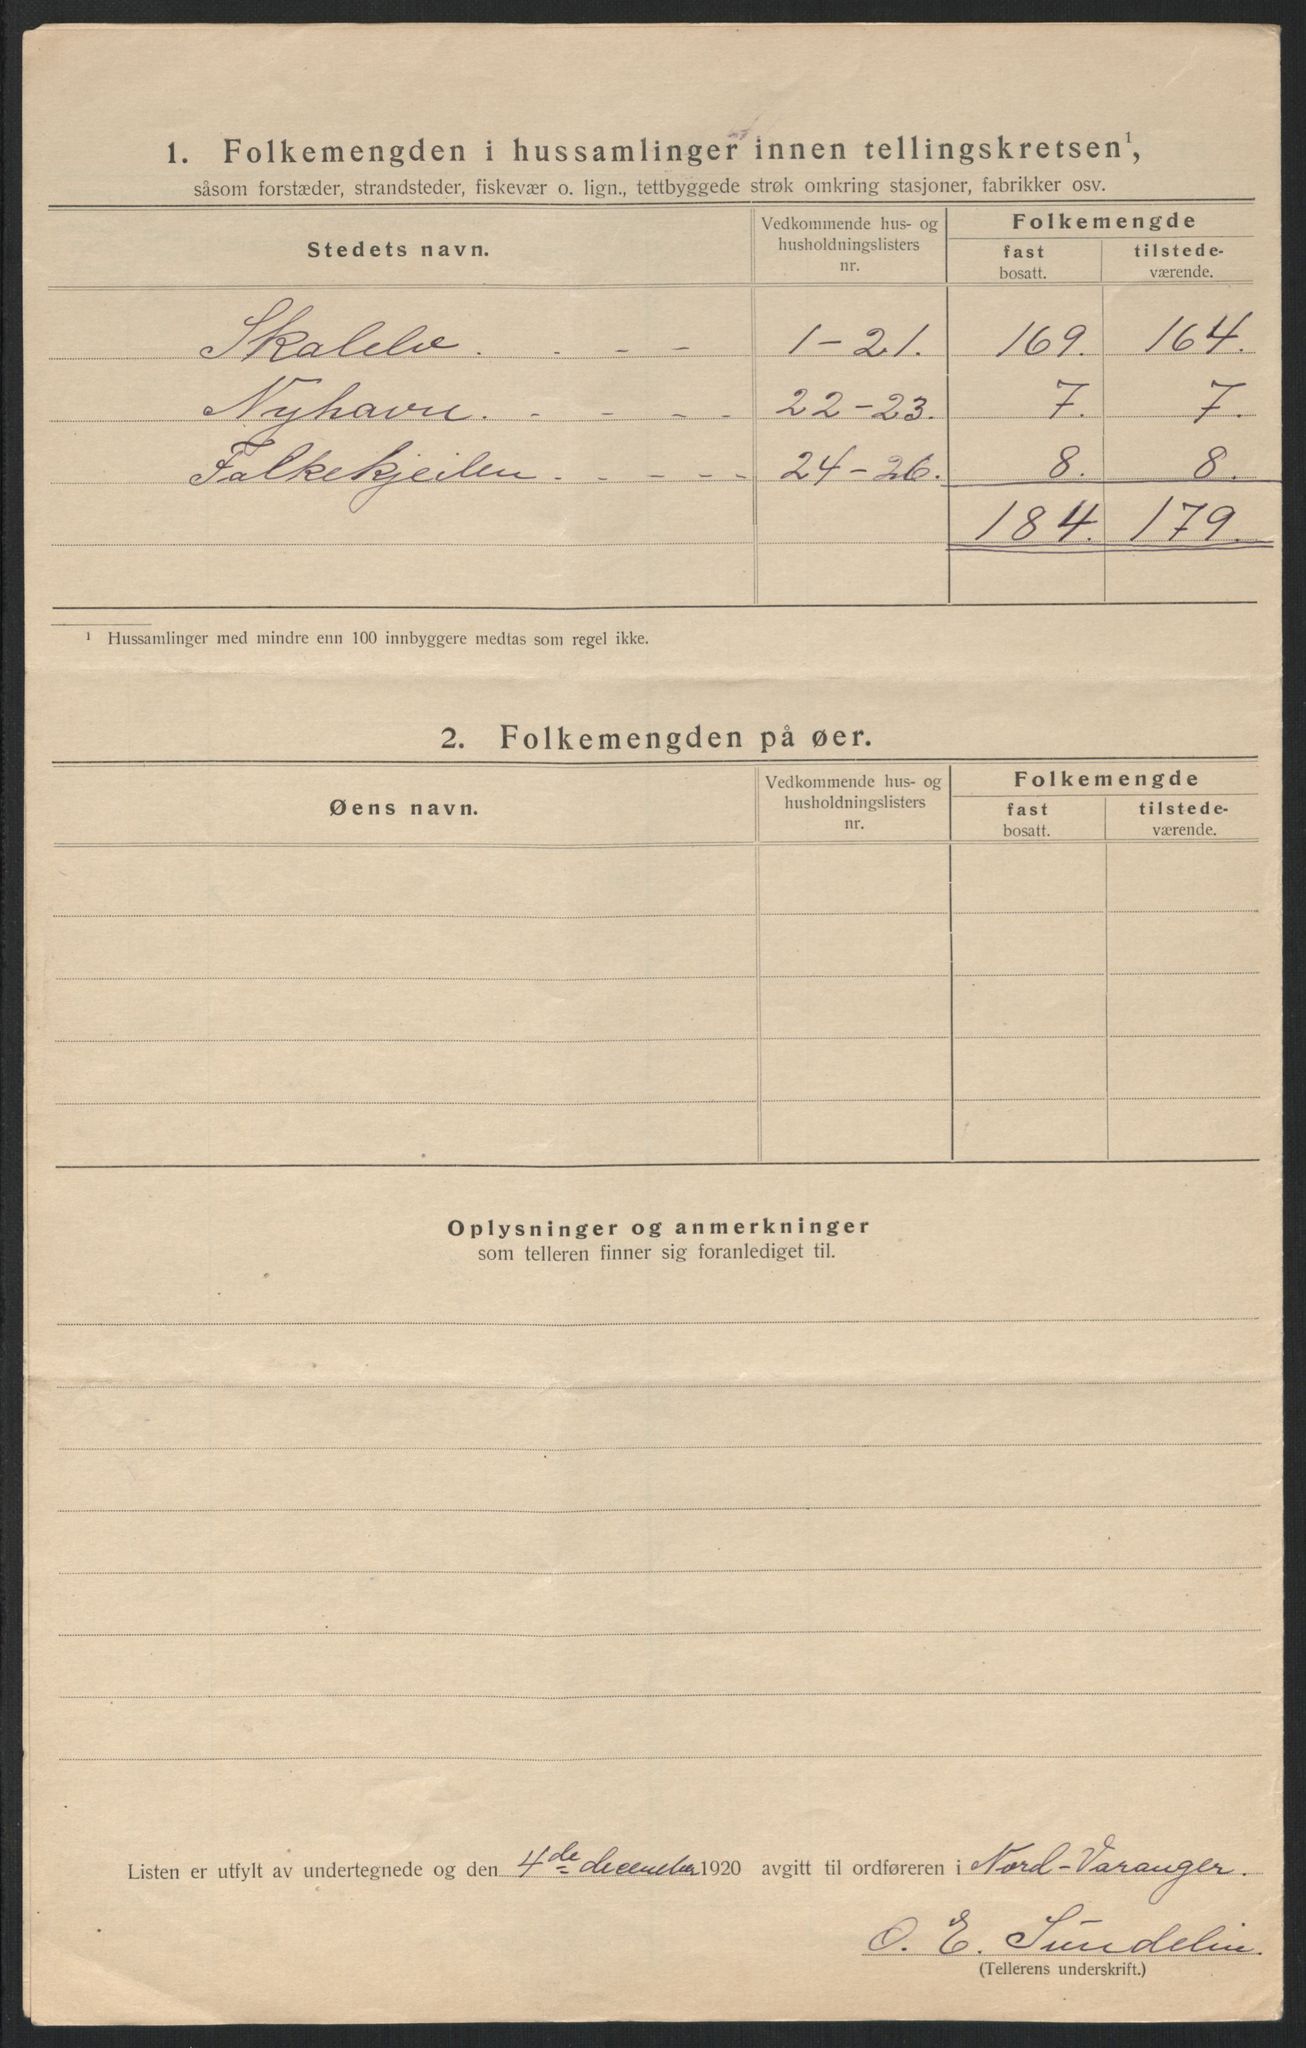 1. Folkemengden i hussamlinger innen tellingskretsen¹,
såsom forstæder, strandsteder, fiskevær o. lign., tettbyggede strøk omkring stasjoner, fabrikker osv.
Stedets navn.
Vedkommende hus- og
husholdningslisters
nr.
Folkemengde
fast
bosatt.
tilstede-
værende.
Skalelv. - - - 1 - 21. 169. 164.
Nyhavn. - - - - 22 - 23. 7. 7.
Falkekjeilen. - - - - 24 - 26. 8. 8.
184. 179.
¹ Hussamlinger med mindre enn 100 innbyggere medtas som regel ikke.
2. Folkemengden på øer.
Øens navn.
Vedkommende hus- og
husholdningslisters
nr.
Folkemengde
fast
bosatt.
tilstede-
værende.
Oplysninger og anmerkninger
som telleren finner sig foranlediget til.
Listen er utfylt av undertegnede og den 4de december 1920 avgitt til ordføreren i Nord-Varanger.
O. E. Sundelin.
(Tellerens underskrift.)